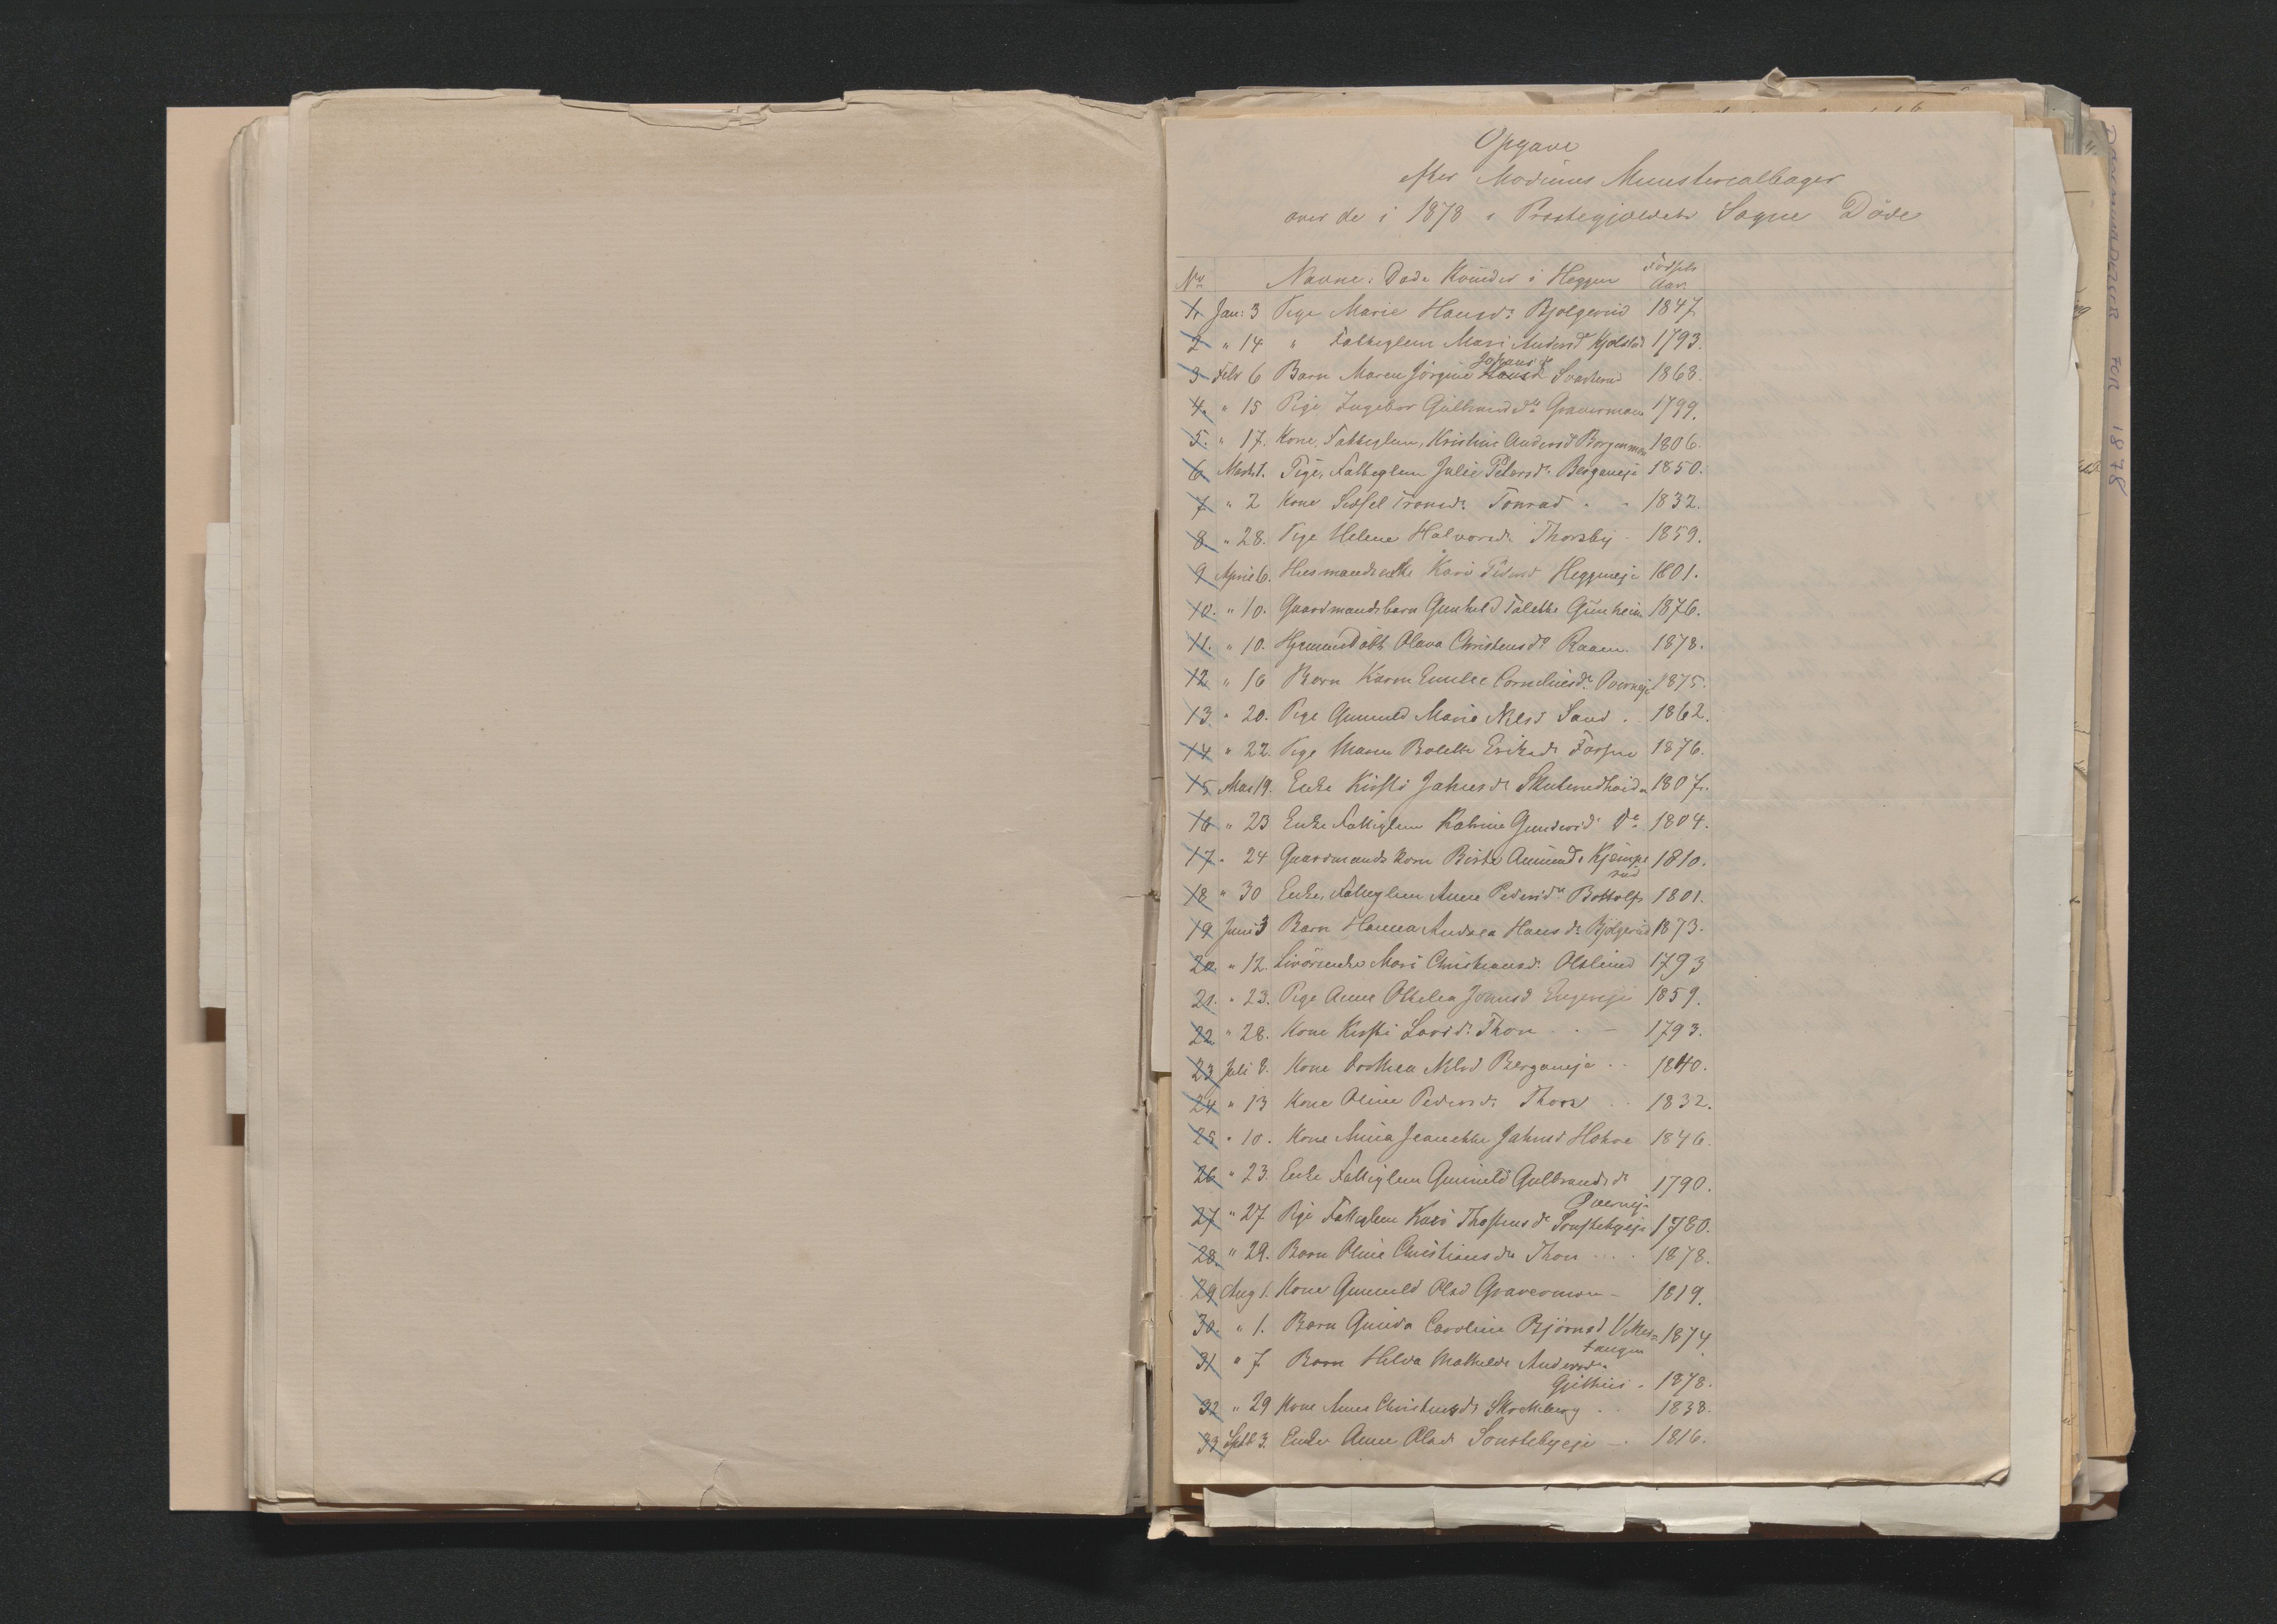 Opgave
efter Modums Ministerialbøger
over de i 1878 i Præstegjældets Sogne Döde
No Navne: Døde Kvinder i Heggen Födsels Aar.
1. Jan: 3 Pige Marie Hansd: Bjølgerud 1847
2 " 14 " Fattiglem Mari Andersd Kjølstad 1793.
3 Febr 6 Barn Maren Jörgine Hansd Johansd Svarterud 1868.
4. " 15 Pige Ingebor Gulbrandsdr Gravermoen 1799.
5. " 17. Kone, Fattiglem, Kristine Andersd 1806.
6 Marts 1. Pige, Fattiglem Julie Petersdr Bergeneje 1850.
7. " 2 Kone Sidsel Tronsdr Tonrud - - 1832.
8. " 28. Pige Helene Halvorsdr Thorsby - 1859.
9 April 6. Husmandsenke Kari Pedersd Heggneje 1801.
10. " 10. Gaardmandsbarn Gunhild Talette Gunheim 1876.
11. " 10. Olava Christensdr Raaen 1878.
12 " 16 Barn Karen Emilie Corneliusdr 1875.
13. " 20. Pige Gunnild Marie Nilsd Sand . 1862.
14 " 22. Pige Maren Bolette Eriksdr 1876.
15 Mai 19. Enke Kirsti Jahnsdr 1807.
16 " 23 Enke Fattiglem Katrine Gundersd Do 1804.
17 " 24 Gaardmands Kone Birte Amundsd Kjemperud 1810.
18 " 30 Enke, Fattiglem Anne Pedersdr Bottolfs 1801.
19 Juni 3 Barn Hanna Andrea Hansdr Bjölgerud 1873.
20. " 12. Mari Christiansd. 1793
21. " 23. Pige Anne Othilia Jonsd Engeneje 1859.
22 " 28. Kone Kirsti Larsdr Thon - - 1793.
23 Juli 8. Kone Dorthea Nilsd Bergeneje . . 1840.
24 " 13 Kone Oline Pedersdr Thon . . 1832.
25 " 10. Kone Anna Jeanette Jahnsd Hohre 1846.
26 " 23. Enke Fattiglem Gunnild Gulbrandsdr 1790.
27 " 27 Pige Fattiglem Kari Thostensdr Sonstebyeje 1780.
28. " 29. Barn Oline Christiansdr Thon . . . . 1878.
29 Aug 1. Kone Gunnild Olsd Gravermoen - 1819.
30. " 1. Barn Gunda Caroline Björnsd 1874.
tangen
31 " 7 Barn Hilda Mathilde Andersdr
Gjethus . 1878.
32 " 29 Kone Anne Christensdr . . 1838.
33 Septb 3. Enke Anne Olsd Sonstebyeje - . 1816.
FOR 1878